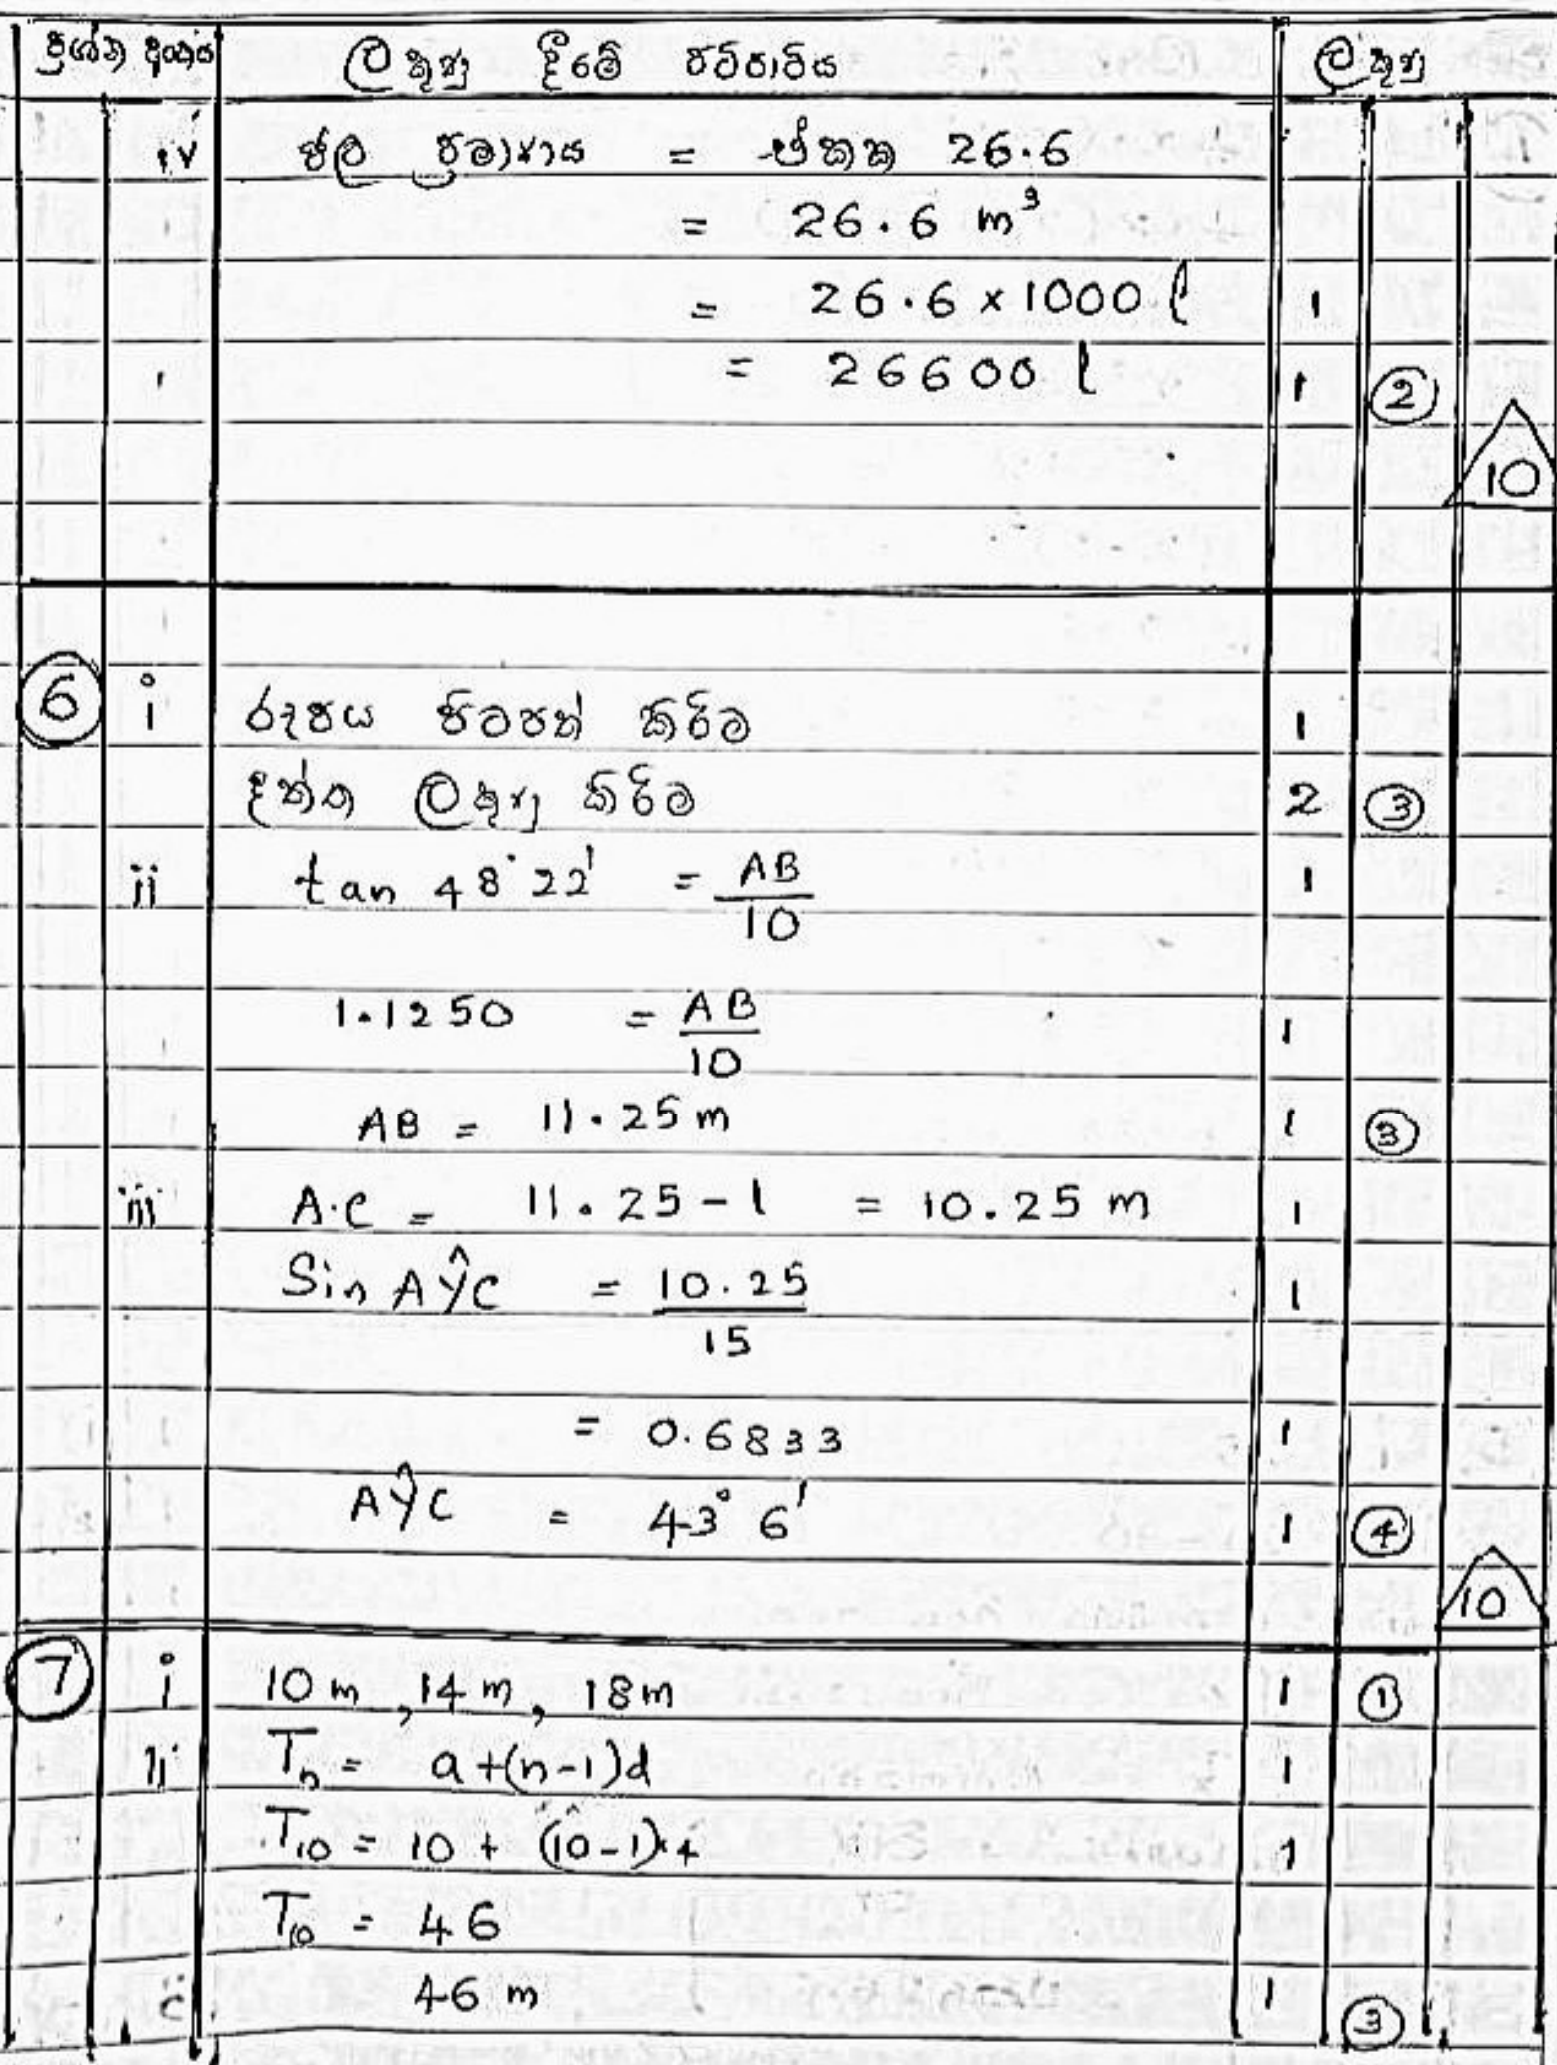 ප්‍රශ්න අංකය ලකුණු දීමේ පටිපාටිය ලකුණු
iv ජල ප්‍රමාණය = ඒකක 26.6
= 26.6 m³
= 26.6 × 1000 l 1
= 26600 l 1 ②
10
⑥ i රූපය පිටපත් කිරීම 1
දත්ත ලකුණු කිරීම 2 ③
ii tan 48° 22' = AB/10 1
1.1250 = AB/10 1
AB = 11.25 m 1 ③
iii A.C = 11.25 - 1 = 10.25 m 1
Sin AŶC = 10.25/15 1
= 0.6833 1
AŶC = 43° 6' 1 ④
10
⑦ i 10 m, 14 m, 18 m 1 ①
ii Tn = a+(n-1)d 1
T10 = 10 + (10-1)4 1
T10 = 46
46 m 1 ③